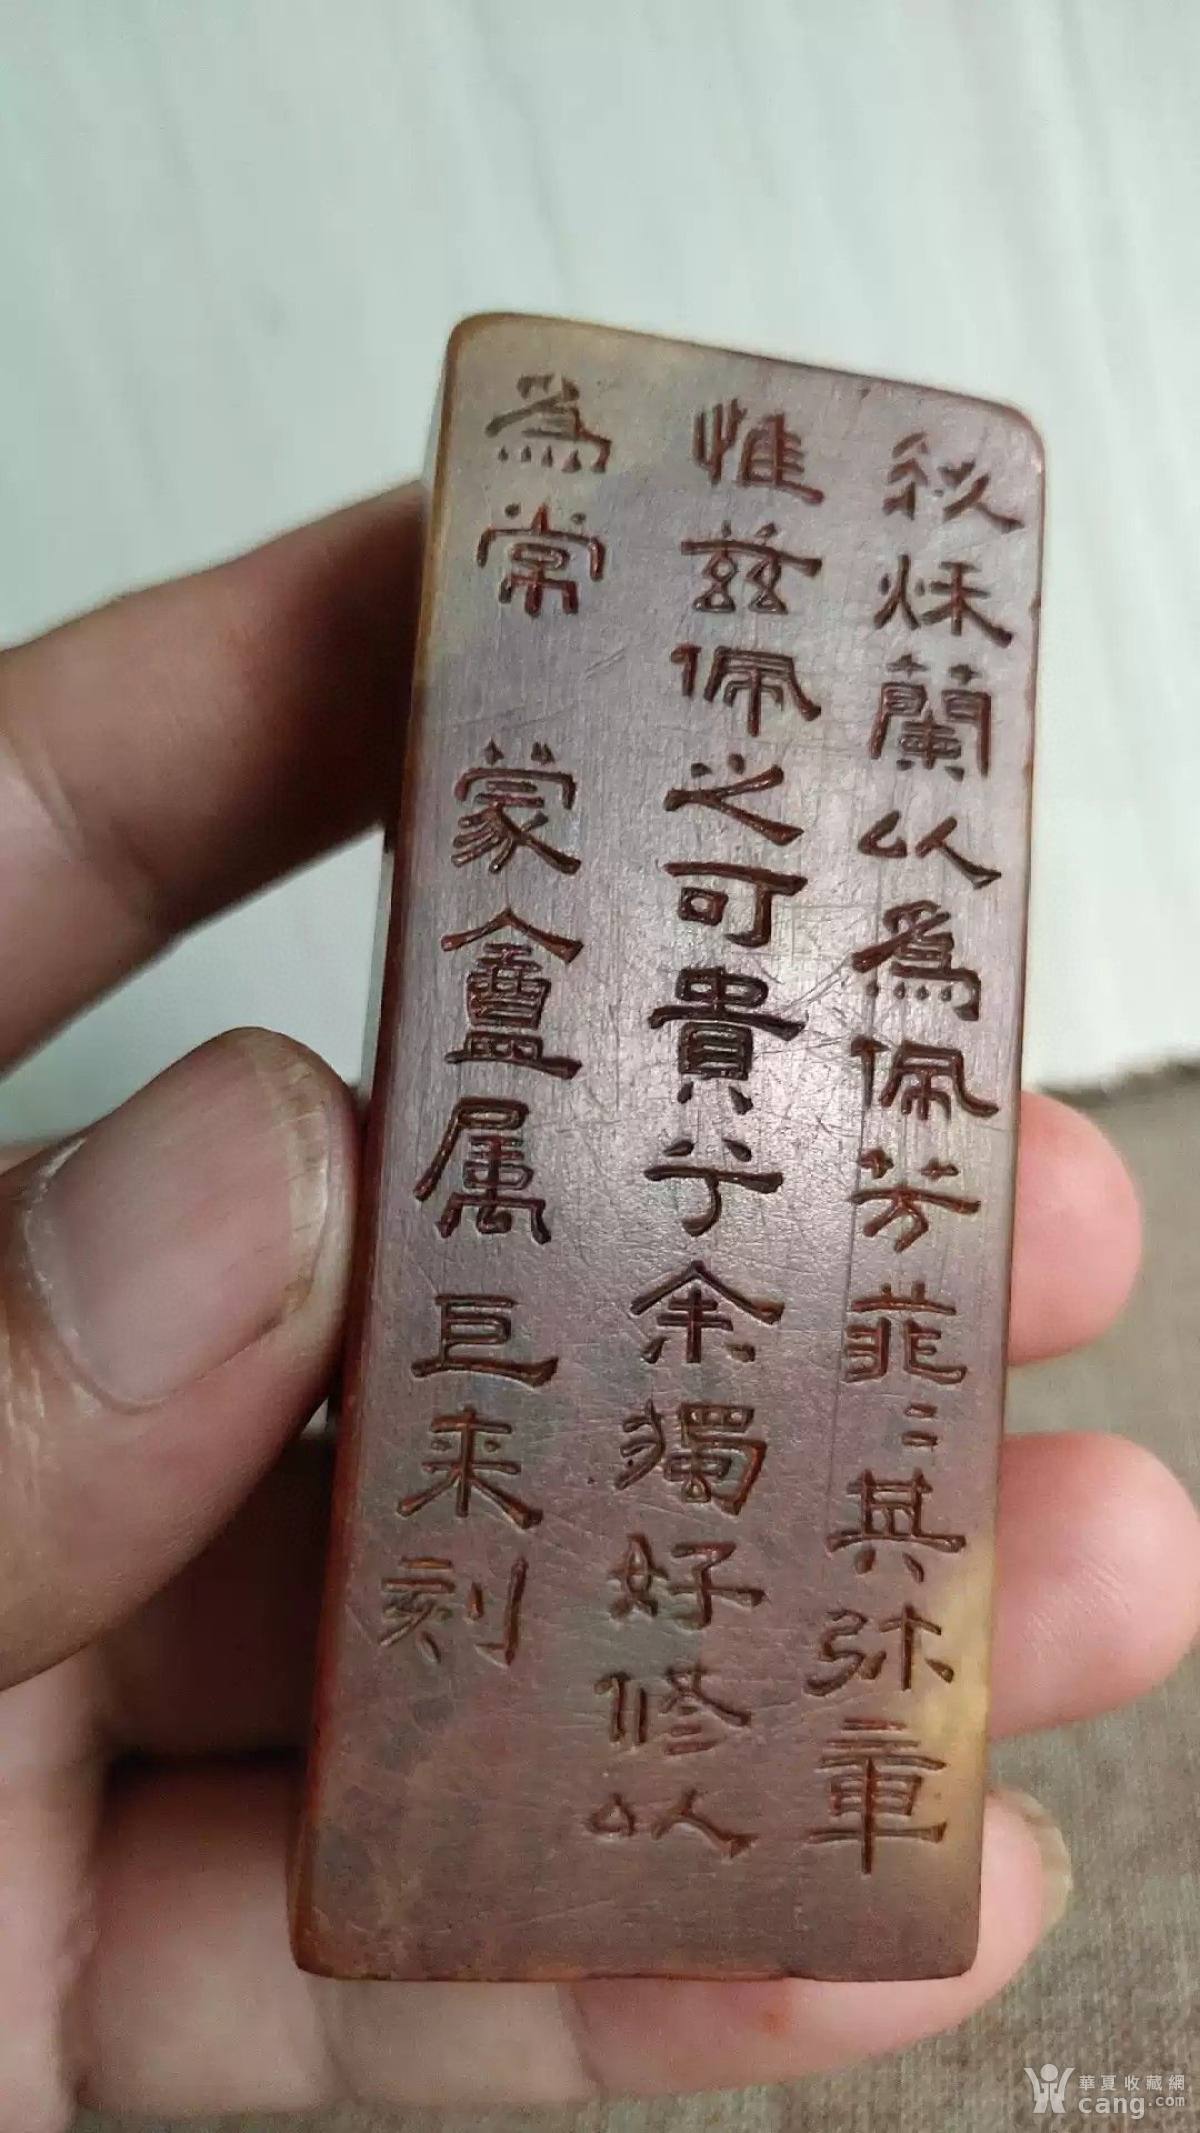 紉秌蘭以為佩芳菲二其弥章
惟茲佩之可貴兮余獨好修以
為常 蒙盦属巨来刻
華夏收藏網
cang.com